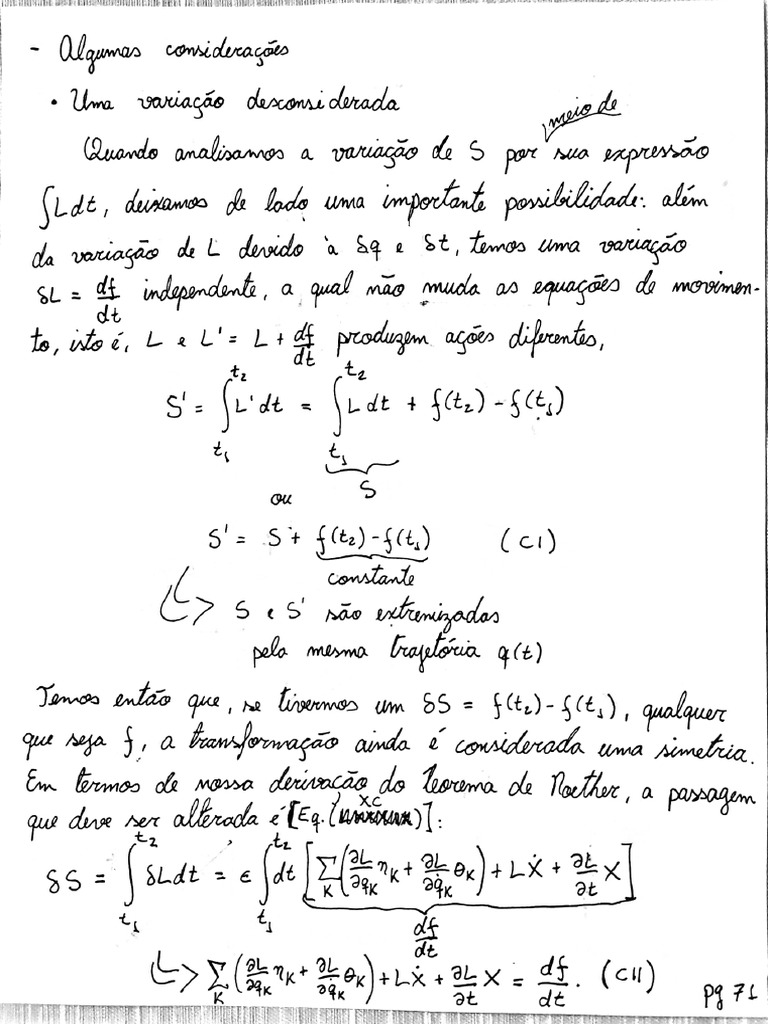 - Algumas considerações
• Uma variação desconsiderada
meio de
Quando analisamos a variação de S por sua expressão
∫Ldt, deixamos de lado uma importante possibilidade: além
da variação de L devido à δq e δt, temos uma variação
δL = df/dt independente, a qual não muda as equações de movimen-
to, isto é, L e L' = L + df/dt produzem ações diferentes,
S' = ∫_{t₁}^{t₂} L'dt = ∫_{t₁}^{t₂} L dt + f(t₂) - f(t₁)
S
ou
S' = S + f(t₂) - f(t₁) (CI)
constante
↳ S e S' são extremizadas
pela mesma trajetória q(t)
Temos então que, se tivermos um δS = f(t₂) - f(t₁), qualquer
que seja f, a transformação ainda é considerada uma simetria.
Em termos de nossa derivação do Teorema de Noether, a passagem
que deve ser alterada é [Eq. (XC)]:
δS = ∫_{t₁}^{t₂} δL dt = ϵ ∫_{t₁}^{t₂} dt [∑_K (∂L/∂q_K η_K + ∂L/∂q̇_K θ_K) + LẊ + ∂t/∂t X]
df/dt
↳ ∑_K (∂L/∂q_K η_K + ∂L/∂q̇_K θ_K) + LẊ + ∂L/∂t X = df/dt. (CII)
pg 71